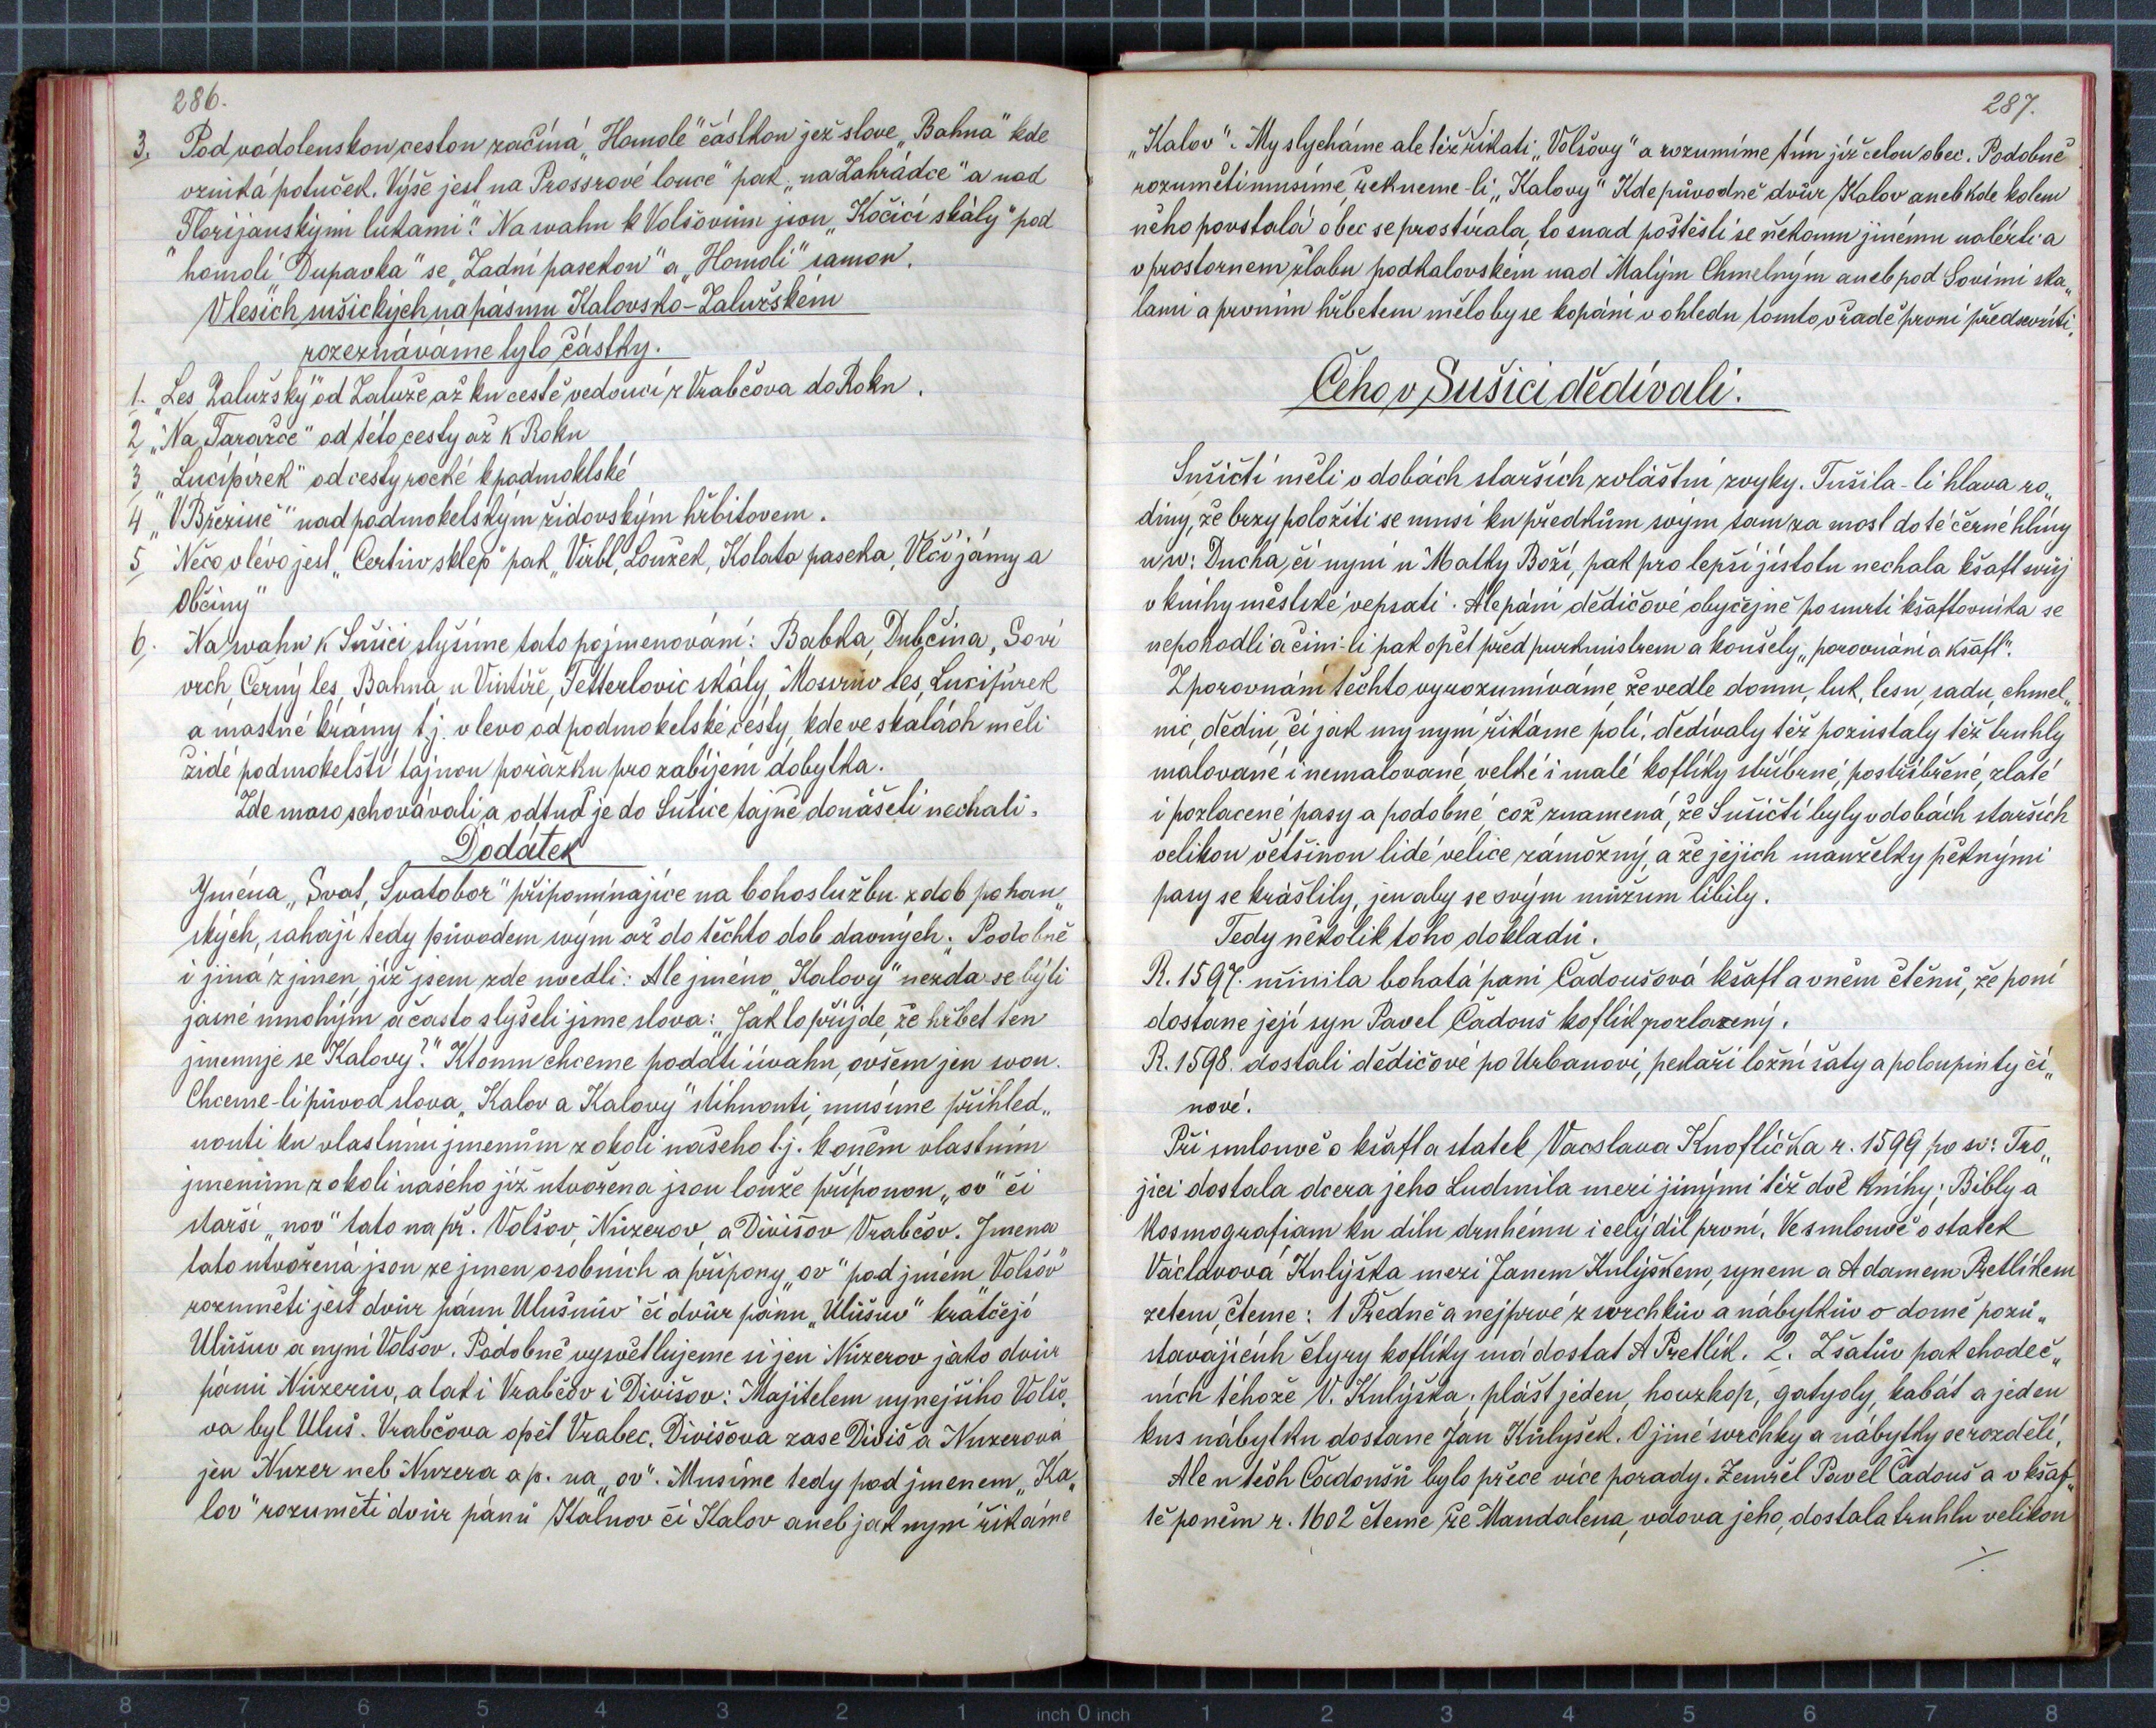 286.
3. Pod vodolenskou cestou začíná „Homole" částkou jež slove „Bahna" kde
vzniká potuček. Výše jest na Prossrové louce" pak „na Zahrádce" a nad
Florijanskými lukami". Na svahu k Volšovům jsou „Kočící skály" pod
"homolí „Dupavka" se „Zadní pasekou" a „Homolí" samou.
V lesích sušických na pásmu Kalovsko-Zalužském
rozeznáváme tyto částky.
1. „Les Zalužský" od Zaluže až ku cestě vedoucí z Vrabčova do Roku.
2 „Na Tararče" od této cesty až k Roku
3 „Lucipírek" od cesty rocké k podmoklské
4 „V Březině" nad podmokelským židovským hřbitovem.
5 Něco vlévo jest „Čertův sklep" pak „Virbl, Loužek, Kolata paseka, Vlčí jámy a
Občiny"
6. Na svahu k Sušici slyšíme tato pojmenování: Babka, Dubčina, Soví
vrch, Černý les, Bahna, u Vintíře, Tetterlovic skály, Mosvrův les, Lucifúrek
a mastné krámy t.j. vlevo od podmokelské cesty, kde ve skalách měli
židé podmokelští tajnou porážku pro zabíjení dobytka.
Zde maso schovávali a odtud je do Sušice tajně donášeti nechali.
Dodátek
Jména „Svat, Svatobor" připomínajíce na bohoslužbu z dob pohan„
ských, sahají tedy původem svým až do těchto dob davných. Podobně
i jiná z jmen, jíž jsem zde uvedli: Ale jméno „Kalovy" nezdá se býti
jasné mnohým a často slyšeli jsme slova: „Jak to přijde, že hřbet ten
jmenuje se Kalovy?" K tomu chceme poddati úvahu, ovšem jen svou.
Chceme-li původ slova „Kalov a Kalovy" stihnouti, musíme přihled„
nouti ku vlastnímu jmenům z okolí našeho t.j. k oněm vlastním
jmenům z okolí našeho jíž utvořena jsou louže příponou „ov" čí
starší „uov" tato na př. Volšov, Nuzerov, a Divišov Vrabčov. Jmena
tato utvořená jsou ze jmen osobních a přípony „ov" pod jmém „Volšov"
rozuměti jest dvůr pánu Ulušuův čí dvůr pánu „Ulušuv" kratčejí
Ulušuv a nyní Volšov. Podobně vysvětlujeme si jen Nuzerov jako dvůr
pánů Nuzerův, a tak i Vrabčov i Divišov: Majitelem nynejšího Volšo„
va byl Uluš. Vrabčova opět Vrabec. Divišova zase Diviš a Nuzerova
jen Nuzer neb Nuzera a p. na „ov". Musíme tedy pod jmenem „Ka„
lov" rozuměti dvůr pánů Kaluov čí Kalov aneb jak nyní říkáme
287.
„Kalov". My slycháme ale též říkati „Volšovy" a rozumíme tím již celou obec. Podobně
rozuměti musíme řekneme-li „Kalovy" Kde původně dvůr Kalov aneb kde kolem
něho povstalá obec se prostírala, to snad poštěstí se někomu jinému nalézti a
v prostornem žlabu podkalovském nad Malým Chmelným aneb pod Sovími ska„
lami a prvním hřbetem mělo by se kopání v ohledu tomto v řadě první předsevzíti.
Čeho v Sušici dědívali.
Sušičtí měli v dobách starších zvláštní zvyky. Tušila-li hlava ro„
diny, že brzy položiti se musí ku předkům svým tam za most do té černé hlíny
u sv: Ducha, čí nyní u Matky Boží, pak pro lepší jistotu nechala kšaft svůj
v knihy městské vepsati. Ale páni dědičové obyčejně po smrti kšaftovníka se
nepohodli a čini-li pak opět před purkmistrem a konšely „porovnání a kšaft".
Z porovnání těchto vyrozumíváme, že vedle domu, luk, lesu, sadu, chmel„
nic, dědin, čí jak my nyní říkáme polí, dědívaly též pozůstalý též truhly
malované i nemalované, velké i malé koflíky stříbrné, postříbřené, zlaté
i pozlacené, pasy a podobné, což znamená, že Sušičtí byly v dobách starších
velikou většinou lidé velice zámožný, a že jejich manželky pěknými
pasy se krášlily, jen aby se svým můžum líbily.
Tedy několik toho dokladů.
R. 1597. učinila bohatá pani Čadoušová kšaft a v něm čtěnů, že poní
dostane její syn Pavel Čadouš koflík pozlazený.
R. 1598. dostali dědičové po Urbanovi, pekaři ložní šaty a poloupinty čí„
nové.
Při smlouvě o kšaft a statek Vacslava Knoflíčka r. 1599 po sv: Tro„
jici dostala dcera jeho Ludmila mezi jinými též dvě knihy; Bibly a
Kosmografiam ku dílu druhému i celý díl první. Ve smlouvě o statek
Václavová Kulýška mezi Janem Kulýškem, synem a Adamem Pretlíkem
zetem, čteme: 1 Předně a nejprvé z svrchkův a nábytkův v domě pozů„
stavajících čtyry koflíky má dostat A Pretlík. 2. Z šatův pak chodeč„
ních téhože V. Kulýška; plášt jeden, houzkop, gatyoly, kabát a jeden
kus nábytku dostane Ján Kůlyšek. O jiné svrchky a nábytky se rozdělí.
Ale u těch Čadoušů bylo přece více porady. Zemřel Pavel Čadouš a v kšaf„
tě poněm r. 1602 čteme že Mandaléna, vdova jeho, dostala truhlu velikou
./.
inch 0 inch